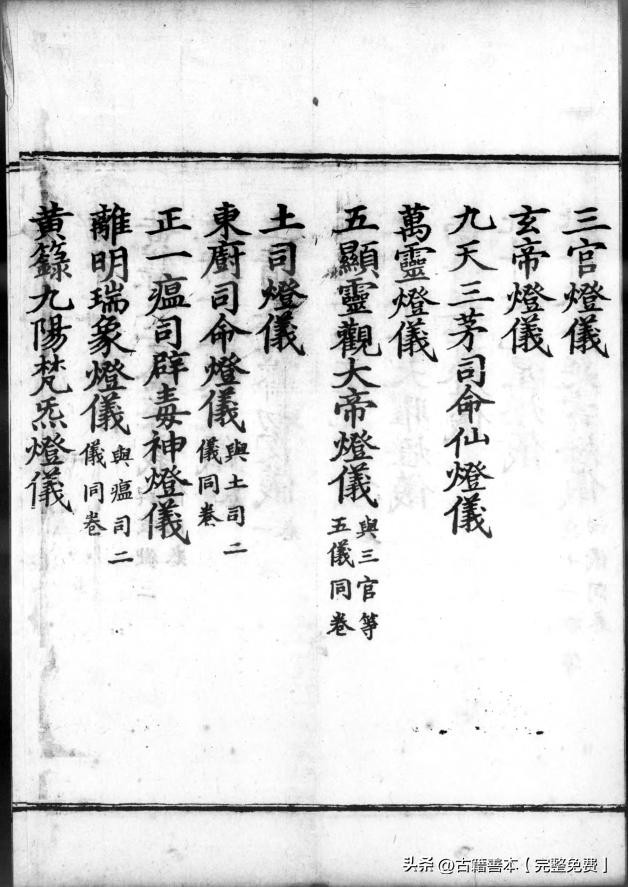 三官燈儀
玄帝燈儀
九天三茅司命仙燈儀
萬靈燈儀
五顯靈觀大帝燈儀 與三官等五儀同卷
土司燈儀
東廚司命燈儀 與土司二儀同卷
正一瘟司辟毒神燈儀
離明瑞象燈儀 與瘟司二儀同卷
黃籙九陽梵炁燈儀
头条 @古籍善本【完整免费】